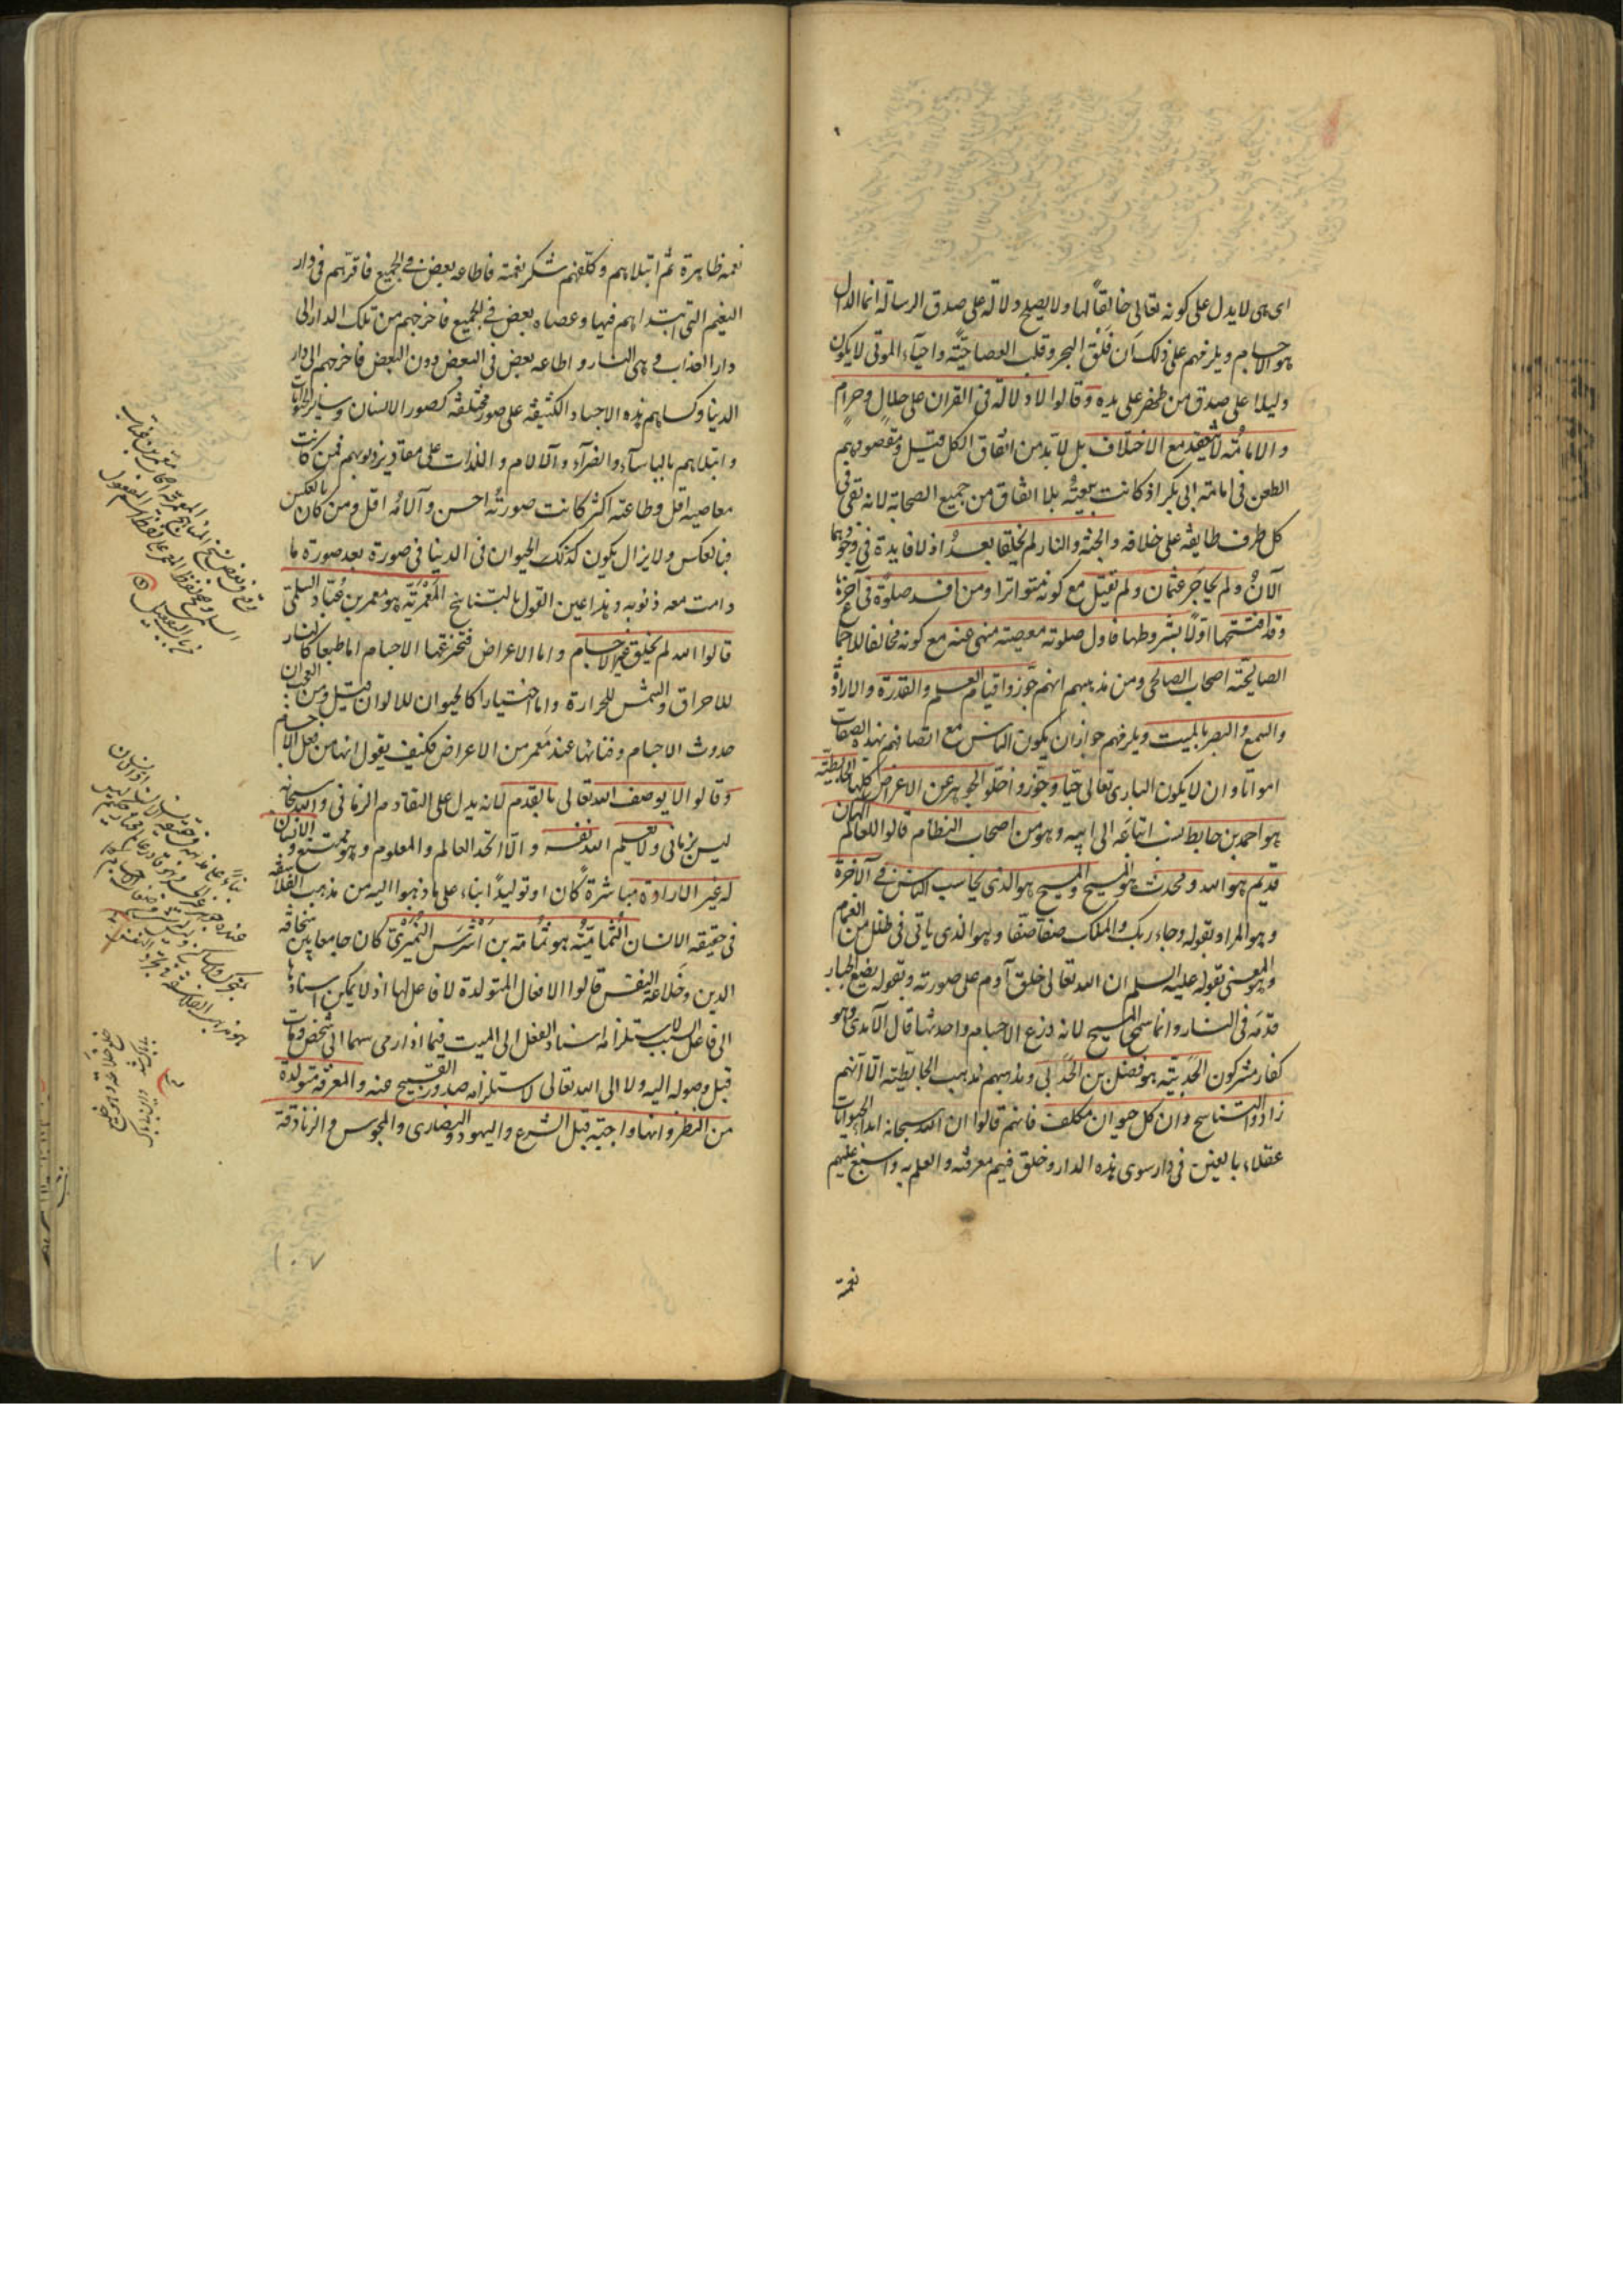 اى هى لا يدل على كونه تعالى خالقا لها ولا يصلح دلالة على صدق الرسالة انما الدال
هو الاجسام ويلزمهم على ذلك ان فلق البحر وقلب العصا حية واحياء الموتى لا يكون
دليلا على صدق من ظهر على يده وقالوا لا دلالة فى القران على حلال وحرام
والامامة لا تنعقد مع الاختلاف بل لا بد من اتفاق الكل قيل ومقصودهم
الطعن فى امامة ابى بكر اذ كانت بيعته بلا اتفاق من جميع الصحابة لانه بقى فى
كل طرف طايفة على خلافه والجنة والنار لم تخلقا بعد اذ لا فايدة فى وجودهما
الآن ولم يحاصر عثمان ولم يقتل مع كونه متواترا ومن افسد صلوة فى آخرها
وقد افتتحها اولا بشروطها فاول صلوته معصية منهى عنه مع كونه مخالفا للاجماع
الصالحية اصحاب الصالحى ومن مذهبهم انهم جوزوا قيام العلم والقدرة والارادة
والسمع والبصر بالميت ويلزمهم جواز ان يكون الناس مع اتصافهم بهذه الصفات
امواتا وان لا يكون البارى تعالى حيا وجوزوا خلو الجوهر عن الاعراض كلها الحابطية
هو احمد بن حابط نسب اتباعه الى ابيه وهو من اصحاب النظام قالوا للعالم الهان
قديم هو الله ومحدث هو المسيح والمسيح هو الذى يحاسب الناس فى الآخرة
وهو المراد بقوله وجاء ربك والملك صفا صفا وهو الذى ياتى فى ظلل من الغمام
وهو المعنى بقوله عليه السلم ان الله تعالى خلق آدم على صورته وبقوله يضع الجبار
قدمه فى النار وانما سمى المسيح لانه ذرع الاجسام واحدثها قال الآمدى وهو
كفار مشركون الحدبية هو فضل بن الحدبى ومذهبهم مذهب الحابطية الا انهم
زادوا التناسخ وان كل حيوان مكلف فانهم قالوا ان الله سبحانه ابدع الحيوانات
عقلاء بالغين فى دار سوى هذه الدار وخلق فيهم معرفته والعلم به واسبغ عليهم
نعمه
نعمه ظاهرة ثم ابتلاهم وكلفهم شكر نعمته فاطاعه بعض فى الجميع فاقرهم فى دار
النعيم التى ابتداهم فيها وعصاه بعض فى الجميع فاخرجهم من تلك الدار الى
دار العذاب وهى النار واطاعه بعض فى البعض دون البعض فاخرجهم الى دار
الدنيا وكساهم هذه الاجساد الكثيفة على صور مختلفة كصور الانسان وسائر الحيوانات
وابتلاهم بالباساء والضراء والآلام واللذات على مقادير ذنوبهم فمن كانت
معاصيه اقل وطاعته اكثر كانت صورته احسن وآلامه اقل ومن كان بالعكس
فبالعكس ولا يزال يكون كذلك الحيوان فى الدنيا فى صورة بعد صورة ما
دامت معه ذنوبه وهذا عين القول بالتناسخ المعمرية هو معمر بن عباد السلمى
قالوا الله لم يخلق غير الاجسام واما الاعراض فتخترعها الاجسام اما طبعا كالنار
للاحراق والشمس للحرارة واما اختيارا كالحيوان للالوان قيل ومن العجب ان
حدوث الاجسام وفنائها عند معمر من الاعراض فكيف يقول انها من فعل الاجسام
وقالوا لا يوصف الله تعالى بالقدم لانه يدل على التقادم الزمانى والله سبحانه
ليس بزمانى ولا يعلم الله نفسه والا اتحد العالم والمعلوم وهو ممتنع والانسان
له غير الارادة مباشرة كان او توليدا بناء على ما ذهبوا اليه من مذهب الفلاسفة
فى حقيقة الانسان الثمامية هو ثمامة بن اشرس النميرى كان جامعا بين سخافة
الدين وخلاعة النفس قالوا الافعال المتولدة لا فاعل لها اذ لا يمكن اسنادها
الى فاعل السبب لاستلزامه اسناد الفعل الى الميت فيما اذا رمى سهما الى شخص ومات
قبل وصوله اليه ولا الى الله تعالى لاستلزامه صدور القبيح عنه والمعرفة متولدة
من النظر وانها واجبة قبل الشرع واليهود والنصارى والمجوس والزنادقة
١٠٧